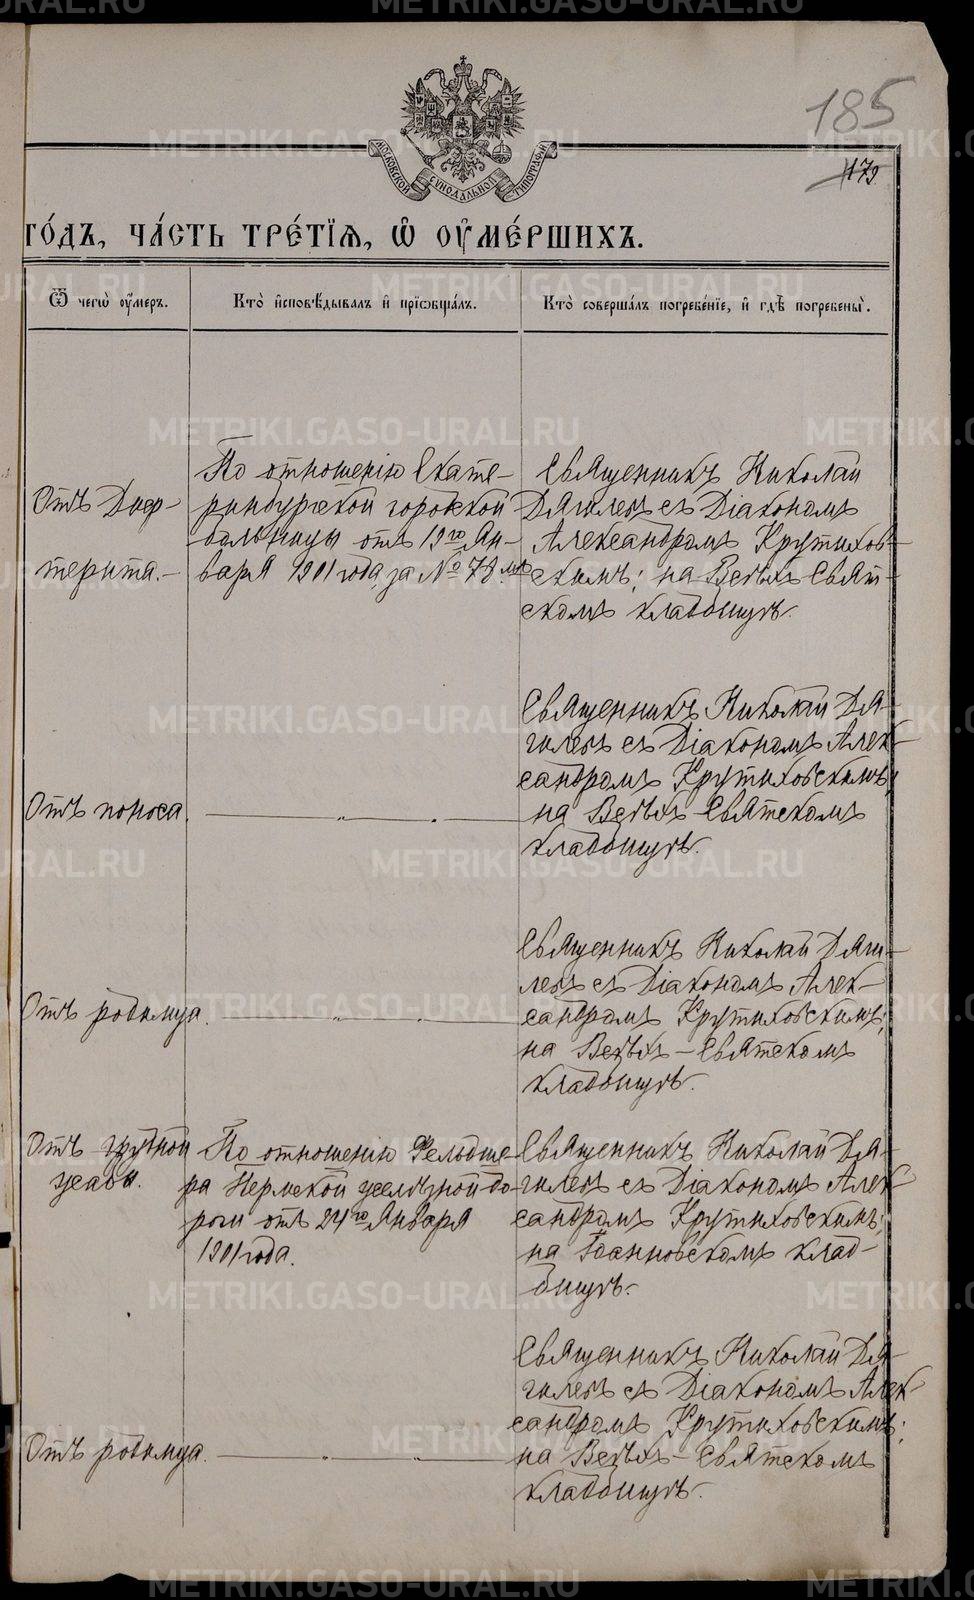 185
179
МОСКОВСКОЙ СѴНОДАЛЬНОЙ ТИПОГРАФІИ
ГО́ДЪ, ЧА́СТЬ ТРЕ́ТІЯ, Ѽ ОУ҆МЕ́РШИХЪ.
Ѿ чегѡ̀ оу҆́меръ.
Кто̀ и҆сповѣ́дывалъ и҆ прїѡбща́лъ.
Кто̀ соверша́лъ погребе́нїе, и҆ гдѣ̀ погребены̀.
Отъ Диф-
терита.-
По отношенію Екате-
ринбургской городской
больницы отъ 19го Ян-
варя 1901 года за № 78.мъ
Священникъ Николай
Дягилевъ съ Діакономъ
Александромъ Крутихов-
скимъ; на Всѣхъ Свят-
скомъ кладбищѣ.
Отъ поноса.
Священникъ Николай Дя-
гилевъ съ Діакономъ Алек-
сандромъ Крутиховскимъ;
на Всѣхъ-Святскомъ
кладбищѣ.
Отъ родимца.
Священникъ Николай Дяги-
левъ съ Діакономъ Алек-
сандромъ Крутиховскимъ;
на Всѣхъ-Святскомъ
кладбищѣ.
Отъ грудной
жабы.
По отношенію Фельдше-
ра Пермской желѣзной до-
роги отъ 24го Января
1901 года.
Священникъ Николай Дя-
гилевъ съ Діакономъ Алек-
сандромъ Крутиховскимъ;
на Іоанновскомъ клад-
бищѣ.
Отъ родимца.
Священникъ Николай Дя-
гилевъ съ Діакономъ Алек-
сандромъ Крутиховскимъ;
на Всѣхъ-Святскомъ
кладбищѣ.
METRIKI.GASO-URAL.RU